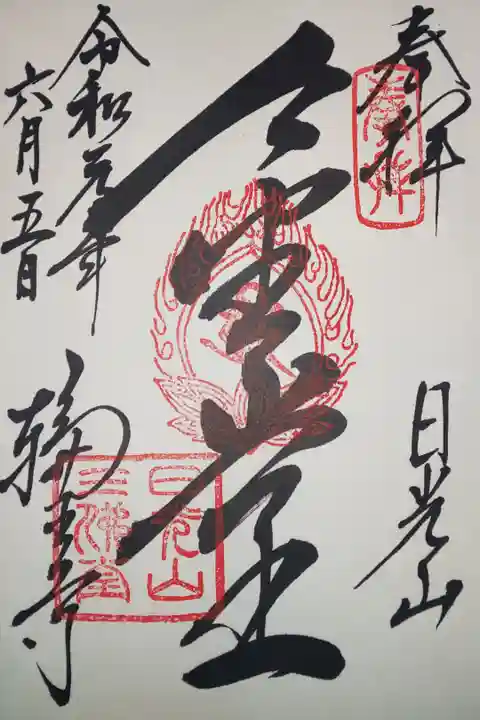 奉拝
奉拝
日光山
金堂
令和元年
六月五日
輪王寺
日光山
三佛堂